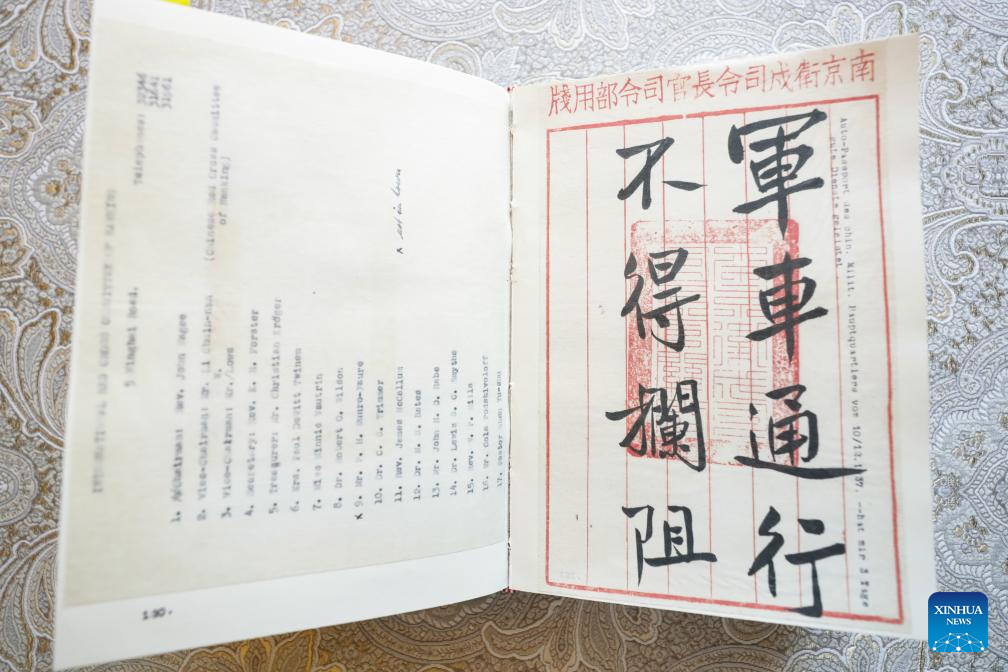 5 Ninghai Road.
Telephones:
1. Chairman: Rev. John Magee
2. Vice-Chairman: Mr. Li Chuin-nan (Chinese Red Cross Committee
of Nanking)
3. Vice-Chairman: Mr. Lowe
4. Secretary: Rev. E. H. Forster
5. Treasurer: Mr. Christian Kröger
6. Mrs. Paul DeWitt Twinem
7. Miss Minnie Vautrin
8. Dr. Robert O. Wilson
x 9. Mr. P. H. Munro-Faure
10. Dr. C. S. Trimmer
11. Rev. James McCallum
12. Dr. M. S. Bates
13. Mr. John H. D. Rabe
14. Dr. Lewis S. C. Smythe
15. Rev. W. P. Mills
16. Mr. Cola Podshivoloff
17. Pastor Shen Yu-shu
x not in town
190.
南京衛戍司令長官司令部用牋
Auto-Passport des chin. Milit. Hauptquartiers vom 10/12.1937. --hat mir 3 Tage
gute Dienste geleistet
軍車通行
不得攔阻
XINHUA
NEWS